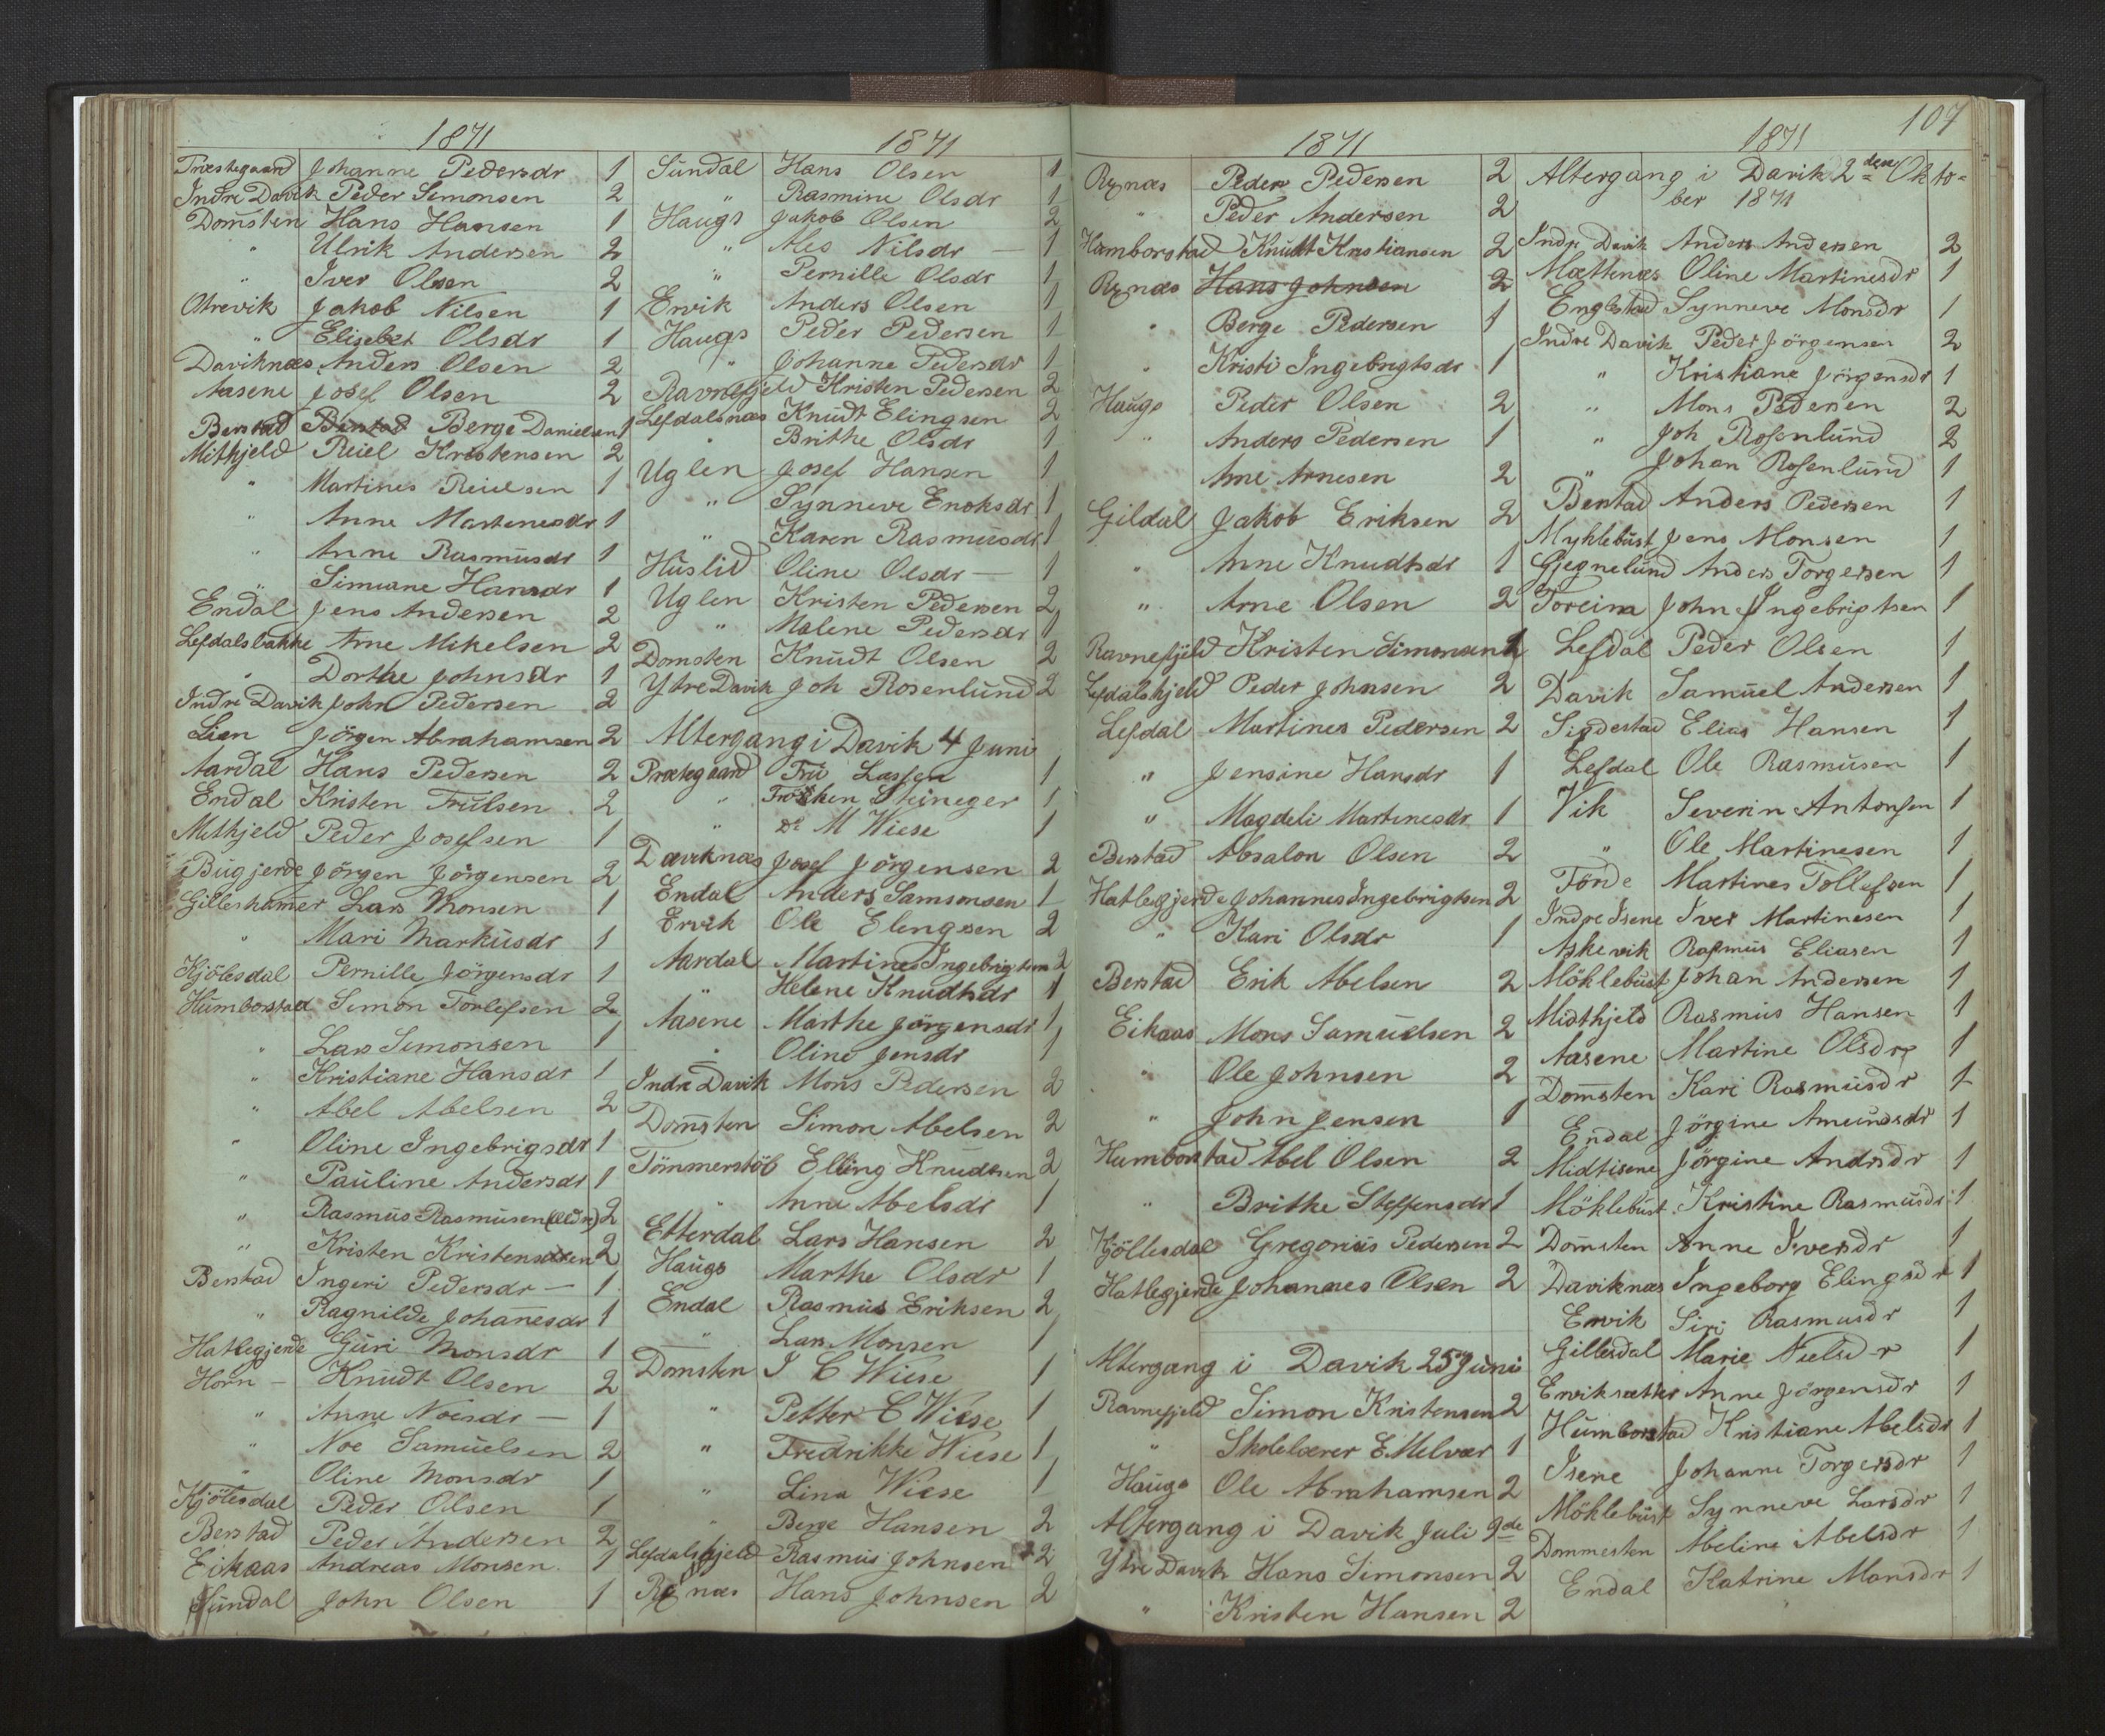 1871
Præstegaard Johanne Pedersdr 1
Indre Davik Peder Simonsen 2
Domsten Hans Hansen 1
" Ulrik Andersen 2
" Iver Olsen 2
Otrevik Jakob Nilsen 1
" Elisebet Olsdr 1
Daviknæs Anders Olsen 2
Aasene Josef Olsen 2
Berstad Berstad Berge Danielsen 1
Mithjeld Reiel Kristensen 2
" Martines Reielsen 1
" Anne Martenesdr 1
" Anne Rasmusdr 1
" Simiane Hansdr 1
Endal Jens Andersen 2
Lefdalsbakke Arne Mikelsen 2
" Dorthe Johnsdr 1
Indre Davik John Pedersen 2
Lien Jörgen Abrahamsen 2
Aardal Hans Pedersen 2
Endal Kristen Trulsen 2
Mithjeld Peder Josefsen 1
Bugjerde Jörgen Jörgensen 2
Gilleshamer Lars Monsen 1
" Mari Markusdr 1
Kjölesdal Pernille Jörgensdr 1
Humborstad Simon Torlefsen 2
" Lars Simonsen 1
" Kristiane Hansdr 1
" Abel Abelsen 2
" Oline Ingebrigsdr 1
" Pauline Andersdr 1
" Rasmus Rasmusen (Eldre) 2
" Kristen Kristensen 2
Berstad Ingeri Pedersdr — 1
" Ragnilde Johanesdr 1
Hatlegjerde Guri Monsdr 1
Horn — Knudt Olsen 2
" Anne Noesdr — 1
" Noe Samuelsen 2
" Oline Monsdr 1
Kjölesdal Peder Olsen 1
Berstad Peder Andersen 2
Eikaas Andreas Monsen 1
Sundal John Olsen 1
1871
Sundal Hans Olsen 1
" Rasmine Olsdr 1
Haugs Jakob Olsen 2
" Ales Nilsdr — 1
" Pernille Olsdr 1
Ervik Anders Olsen 1
Haugs Peder Pedersen 1
" Johanne Pedersdr 1
Ravnefjeld Kristen Pedersen 2
Lefdalsnæs Knudt Elingsen 2
" Brithe Olsdr 1
Uglen Josef Hansen 1
" Synneve Enoksdr 1
" Karen Rasmusdr 1
Huslid Oline Olsdr — 1
Uglen Kristen Pedersen 2
" Malene Pedersdr 1
Domsten Knudt Olsen 2
Ytre Davik Joh Rosenlund 2
Altergang i Davik 4 Juni
Prætegaard Fru Lassen 1
" Fröken Steineger 1
" do M Wiese 1
Daviknæs Josef Jörgensen 2
Endal Anders Samsonsen 1
Ervik Ole Elengsen 2
Aardal Martines Ingebrigtsen 2
" Helene Knudtsdr 1
Aasene Marthe Jörgensdr 1
" Oline Jensdr 1
Indre Davik Mons Pedersen 2
Domsten Simon Abelsen 2
Tömmerstöb Elling Knudtsen 2
" Anne Abelsdr 1
Etterdal Lars Hansen 2
Haugs Marthe Olsdr 1
Endal Rasmus Eriksen 2
" Lars Monsen 1
Domsten I C Wiese 1
" Petter C Wiese 1
" Fredrikke Wiese 1
" Lina Wiese 1
" Berge Hansen 2
Lefdalshjeld Rasmus Johnsen 2
Rynæs Hans Johnsen 2
107
1871
Rynæs Peder Pedersen 2
" Peder Andersen 2
Humborstad Knudt Kristiansen 2
Rynæs Hans Johnsen 2
" Berge Pedersen 1
" Kristi Ingebrigtsdr 1
Haugs Peder Olsen 2
" Anders Pedersen 1
Arne Arnesen 2
Gildal Jakob Eriksen 2
" Anne Knudtsdr 1
" Arne Olsen 2
Ravnefjeld Kristen Simonsen 1
Lefdalshjeld Peder Johnsen 2
Lefdal Martines Pedersen 2
" Jensine Hansdr 1
" Magdeli Martinesdr 1
Berstad Absalon Olsen 2
Hatlegjerde Johannes Ingebrigtsen 2
" Kari Olsdr 1
Berstad Erik Abelsen 2
Eikaas Mons Samuelsen 2
" Ole Johnsen 2
" John Jensen 1
Humborstad Abel Olsen 2
" Brithe Steffensdr 1
Kjöllesdal Gregorius Pedersen 2
Hatlegjerde Johannes Olsen 2
Altergang i Davik 25 Juni
Ravnefjeld Simon Kristensen 2
" Skolelærer E Melvær 1
Haugs Ole Abrahamsen 2
Altergang i Davik Juli 9de
Ytre Davik Hans Simonsen 2
" Kristen Hansen 2
1871
Altergang i Davik 2den Okto-
ber 1871
Indre Davik Anders Andersen 2
Mættenæs Oline Martinesdr 1
Englstad Synneve Monsdr 1
Indre Davik Peder Jörgensen 2
" Kristiane Jörgensdr 1
" Mons Pedersen 2
" Joh Rosenlund 2
" Johan Rosenlund 1
Berstad Anders Pedersen 1
Myhlebust Jens Monsen 1
Gjegnelund Anders Torgersen 1
Toreim John Ingebrigtsen 1
Lefdal Peder Olsen 1
Davik Samuel Andersen 1
Sigdestad Elias Hansen 1
Lefdal Ole Rasmusen 1
Vik Severin Antonsen 1
" Ole Martinesen 1
Förde Martines Tollefsen 1
Indre Isene Iver Martinesen 1
Askevik Rasmus Eliasen 1
Möklebust Johan Andersen 1
Midthjeld Rasmus Hansen 1
Aasene Martine Olsdr 1
Domsten Kari Rasmusdr 1
Endal Jörgine Amundsdr 1
Midtisene Jörgine Andrsdr 1
Möklebust Kristine Rasmusdr 1
Domsten Anne Iversdr 1
Daviknæs Ingeborg Elingsdr 1
Ervik Siri Rasmusdr 1
Gillesdal Marie Nielsdr 1
Erviksætter Anne Jörgensdr 1
Humborstad Kristiane Abelsdr 1
Isene Johanne Torgersdr 1
Möklebust Synneve Larsdr 1
Dommesten Abeline Abelsdr 1
Endal Katrine Monsdr 1